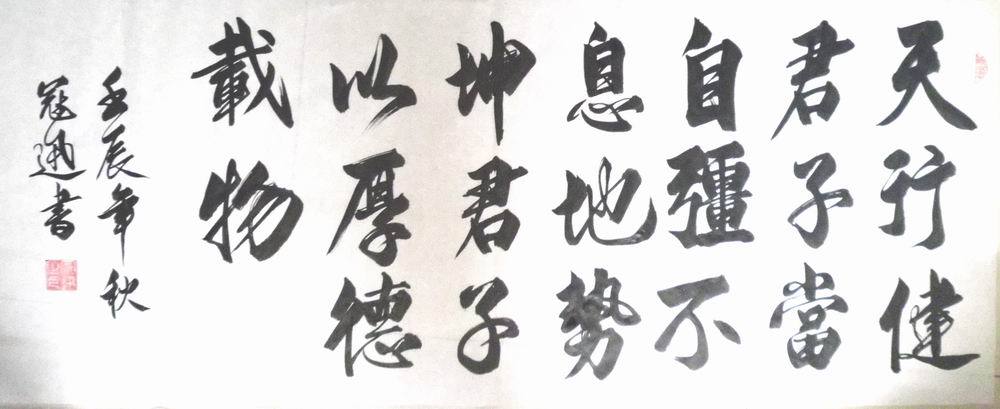 天行健
君子當
自彊不
息地勢
坤君子
以厚德
載物
壬辰年秋
冠迅書